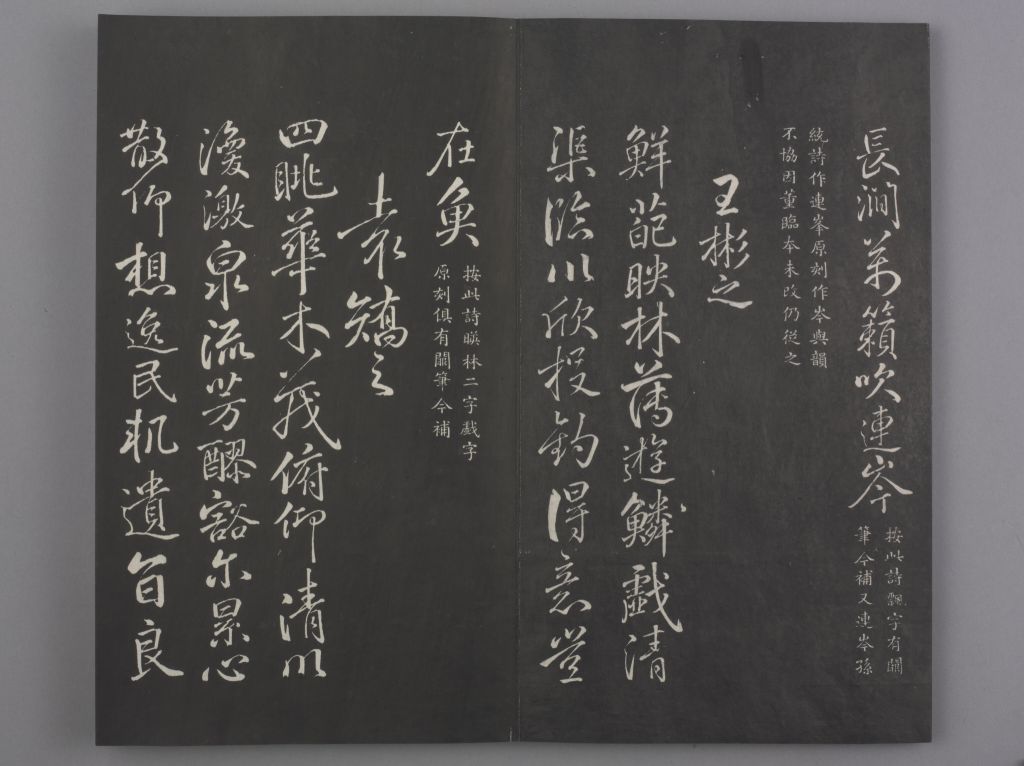 長澗萬籟吹連岑
按此詩飄字有闕
筆今補又連岑孫
統詩作連峯原刻作岑與韻
不協因董臨本未改仍從之
王彬之
鮮葩映林薄遊鱗戲清
渠臨川欣投釣得意豈
在魚
按此詩映林二字戲字
原刻俱有闕筆今補
袁嶠之
四眺華木茂俯仰清川
渙激泉流芳醪豁尔累心
散仰想逸民軌遺音良